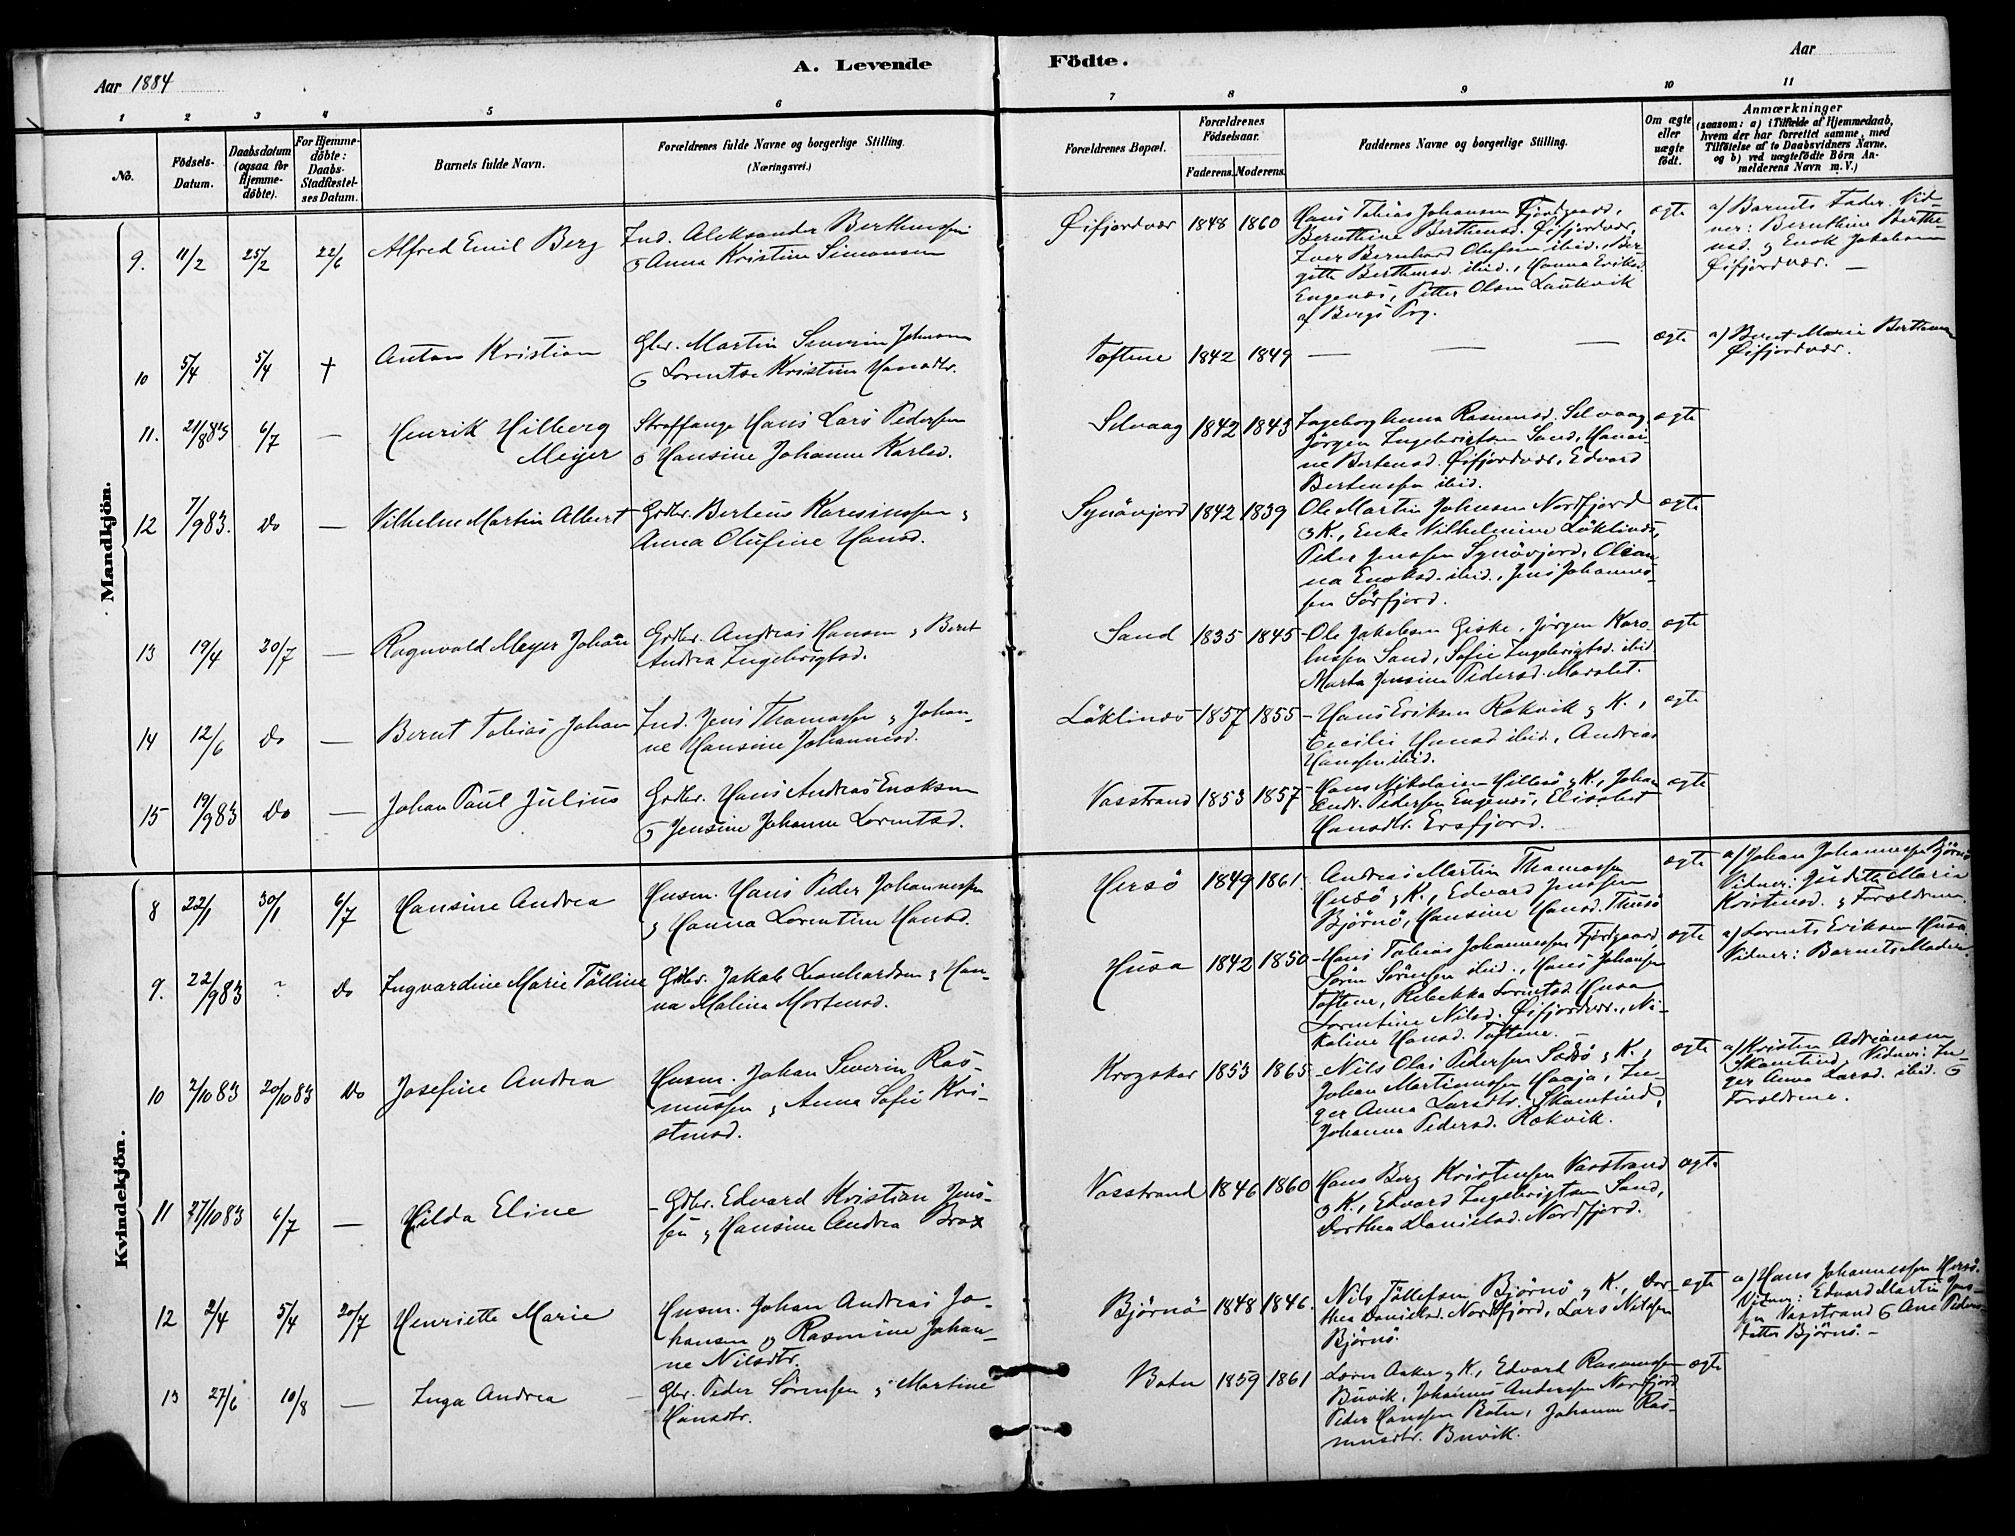 Aar 1884
A. Levende
Födte.
Aar
1 2 3 4 5 6 7 8 9 10 11
No.
Födsels-
Datum.
Daabsdatum
(ogsaa for
Hjemme-
döbte).
For Hjemme-
döbte:
Daabs-
Stadfæstel-
ses Datum.
Barnets fulde Navn.
Forældrenes fulde Navne og borgerlige Stilling.
(Næringsvei.)
Forældrenes Bopæl.
Forældrenes
Födselsaar.
Faderens. Moderens.
Faddernes Navne og borgerlige Stilling.
Om ægte
eller
uægte
født.
Anmærkninger
(saasom: a) i Tilfælde af Hjemmedaab,
hvem der har forrettet samme, med
Tilföielse af to Daabsvidners Navne,
og b) ved uægtefödte Börn An-
melderens Navn m.V.)
Mandkjön.
9. 11/2 25/2 22/6 Alfred Emil Berg
Ind. Aleksander Berthenssen
Anna Kristine Simonsen
Øifjordvær 1848 1860
Hans Tobias Johansen Fjordgaard,
Bernthine Berthensd. Øifjordvær,
Iver Bernhard Olufsen ibid., Ber-
gitte Berthensd. ibid., Hanna Eriksd.
Engenæs, Petter Olsen Laukvik
af Bergs Prg.
ægte
a/ Barnets Fader. Vid-
ner: Bernthine Berthe-
nsd. og Enok Jakobsen
Øifjordvær. —
10 5/4 5/4 + Anton Kristian
Gbr. Martin Severin Johnsen
Lorentse Kristine Hansdtr.
Toftene 1842 1849 — — —
ægte
a/ Beret Marie Berthensen
Øifjordvær.
11. 21/883 6/7 — Henrik Hilberg
Meyer
Straffange Hans Lars Pedersen
Hansine Johanne Karlsd.
Selvaag 1842 1843
Ingeborg Anna Rasmusd. Selvaag
Jørgen Ingebrigtsen Sand, Hansi-
ne Bertensd. Øifjordvær, Edvard
Bertensen ibid.
ægte
12 7/983. Do — Vilhelm Martin Albert
Grdbr. Berteus Karesiussen &
Anna Olufine Hansd.
Synövjord 1842 1839
Ole Martin Johnsen Nordfjord
& K., Enke Vilhelmine Löklinds,
Peder Jenssen Synövjord, Olean-
na Enoksd. ibid., Jens Johannes-
sen Sörfjord.
ægte
13 19/4 20/7 — Ragnvald Meyer Johan
Grdbr. Andreas Hansen & Beret
Andrea Ingebrigtsd.
Sand 1835 1845
Ole Jakobsen Giske, Jørgen Karo-
lussen Sand, Sofie Ingebrigtsd. ibid.
Marta Jensine Pedersd.
ægte
14 12/6 Do — Bernt Tobias Johan
Ind. Jens Thomassen & Johan-
ne Hansine Johannesd.
Löklinds 1857 1855
Hans Eriksen Rakvik & K.,
Cecilie Hansd ibid., Andreas
Hanssen ibid.
ægte
15 19/983 Do — Johan Paul Julius
Grdbr. Hans Andreas Enoksen
Jensine Johanne Lorentsd.
Vasstrand 1853 1857
Hans Nikolaisen Hillesö & K., Johan
Andr. Pedersen Engenes, Elisabet
Hansdtr. Ersfjord.
ægte
Kvindekjön.
8 22/1 30/1 6/7 Hansine Andrea
Husm. Hans Peder Johannessen
& Hanna Lorentine Hansd.
Hersö 1849 1861
Andreas Martin Thomassen
Hersö & K., Edvard Jenssen
Björnö, Hansine Hansd.
ægte
a/ Johan Johannessen Björnö
Vidner: Judith Maria
Kristensd. & Forældrene.
9. 22/983 ? Do Ingvardine Marie Tölline
Gdbr. Jakob Leonhardsen & Han-
na Malina Mortensd.
Husa 1842 1850
Hans Tobias Johannessen Fjordgaard,
Sörn Sörensen ibid., Hans Johansen
Toftene, Rebekka Lorentsd. Husa
Lorentine Nilsd. Øifjordvær., Ni-
koline Hansd. Toftene.
ægte
a/ Lorents Eriksen Husa.
Vidner: Barnets Moder.
10 2/1083 20/1083 Do Josefine Andrea
Husm. Johan Severin Ras-
mussen & Anna Sofie Kri-
stensd.
Krogskar 1853 1865
Nils Olai Pedersen & K.,
Johan Martinussen Haaja, In-
ger Anna Larsdtr. Skamtind,
Johanna Pedersd. Rakvik.
ægte
a/ Kristen Adriansen
Skamtind. Vidner: In-
ger Anna Larsd. ibid. &
Forældrene.
11 27/1083 6/7 — Hilda Eline
Gdbr. Edvard Kristian Jens-
sen & Hansine Andrea Brox
Vasstrand 1846 1860
Hans Berg Kristensen Vasstrand
& K., Edvard Ingebrigtsen Sand,
Dorthea Danielsd. Nordfjord.
ægte
12 2/4 5/4 20/7 Henriette Marie
Husm. Johan Andreas Jo-
hansen og Rasmine Johan-
ne Nilsdtr.
Björnö 1848 1846.
Nils Töllefsen Björnö & K., Dor-
thea Danielsd. Nordfjord, Lars Nilssen
Björnö.
ægte
a/ Hans Johannessen Hersö.
Vidner: Edvard Martin Jens-
sen Vasstrand & Ane Peders-
datter Björnö. —
13 27/6 10/8 — Inga Andrea
Gbr. Peder Sörensen & Martine
Hansdtr.
Boten 1859 1861
Aaker & K., Edvard Rasmussen
Buvik, Johannes Andersen Nordfjord
Peder Hanssen Boten, Johanna Ras-
musdtr. Buvik.
ægte